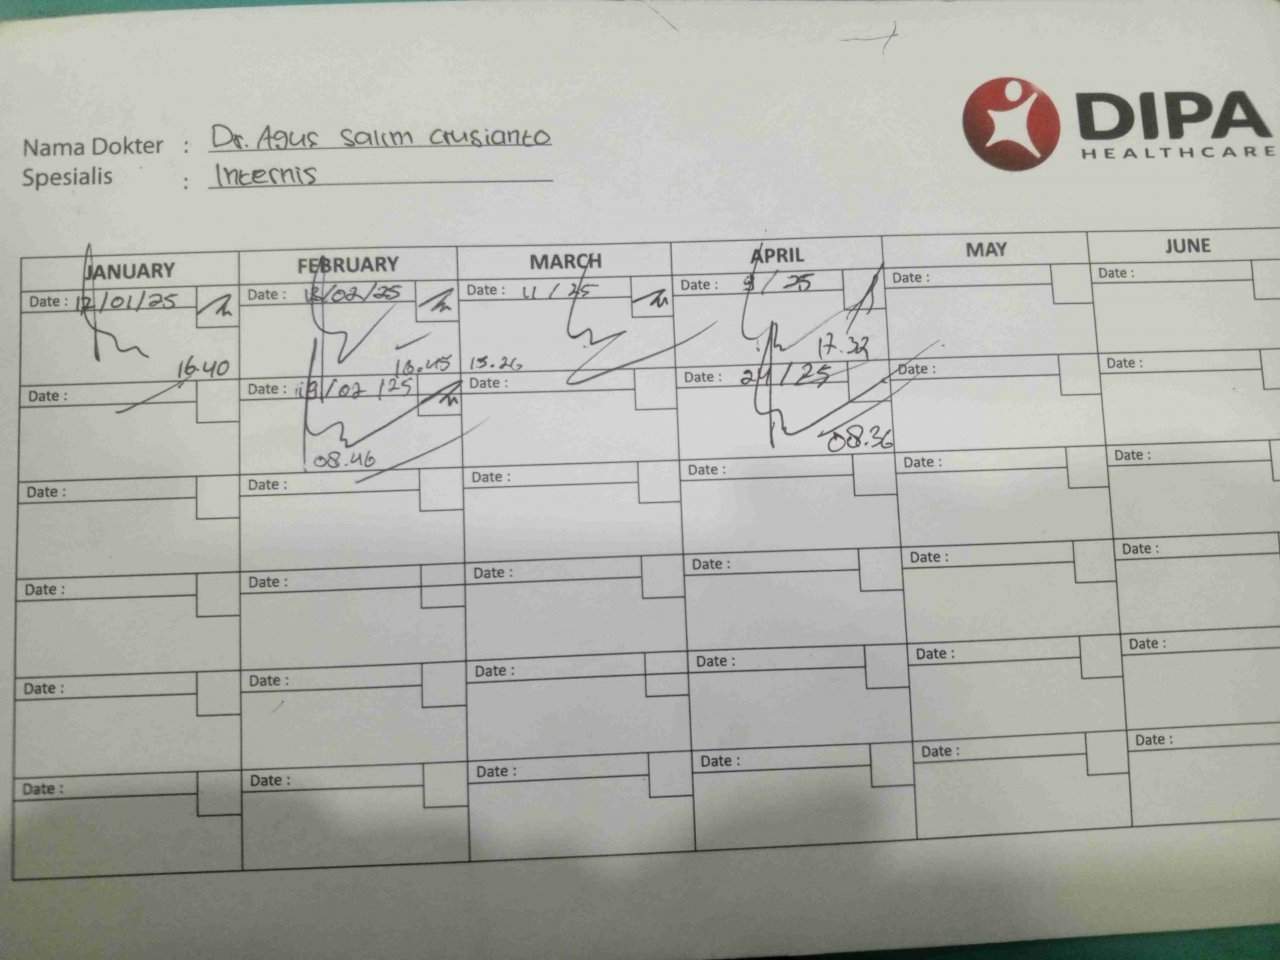 DIPA
HEALTHCARE
Nama Dokter : Dr. Agus Salim Crusianto
Spesialis : Internis
JANUARY FEBRUARY MARCH APRIL MAY JUNE
Date : 17/01/25 Date : 13/02/25 Date : 11/25 Date : 9/25 Date : Date :
16.40 16.45 15.26 17.32
Date : Date : 19/02/25 Date : Date : 24/25 Date : Date :
08.46 08.36
Date : Date : Date : Date : Date : Date :
Date : Date : Date : Date : Date : Date :
Date : Date : Date : Date : Date : Date :
Date : Date : Date : Date : Date : Date :